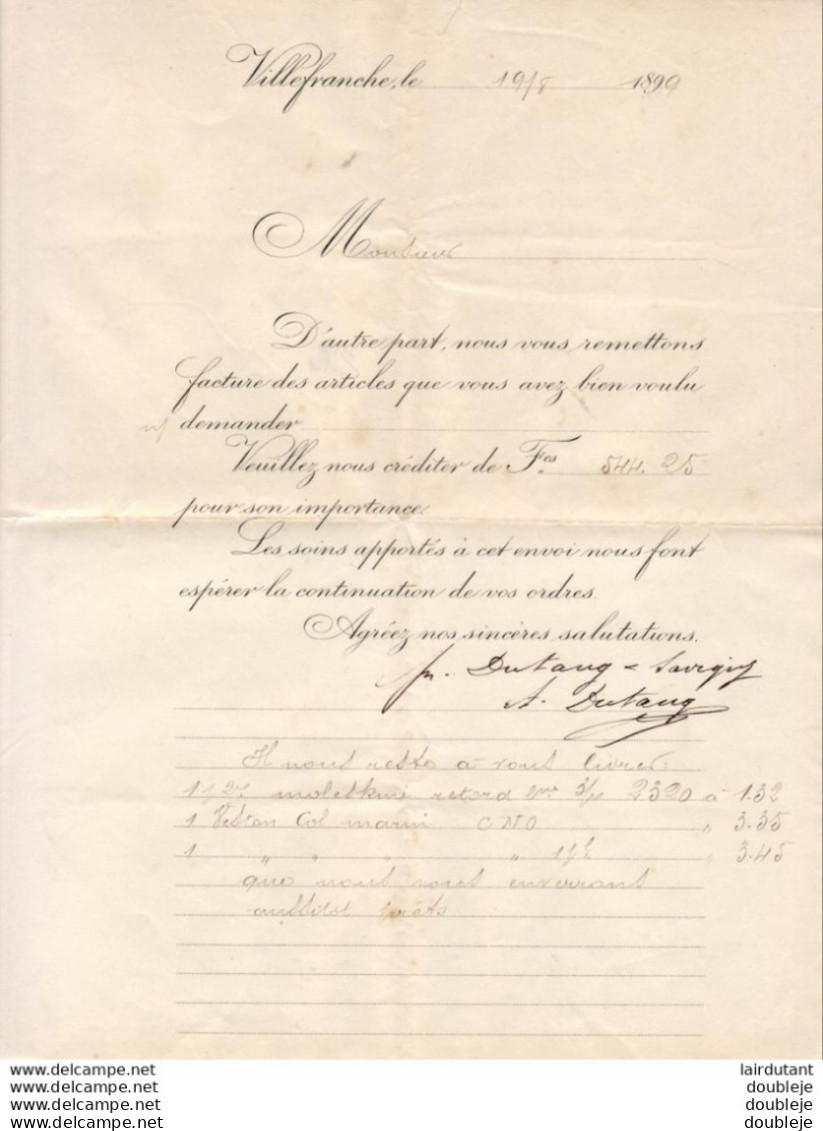 Villefranche, le 19/8 1899
Monsieur
D'autre part, nous vous remettons
facture des articles que vous avez bien voulu
demander
Veuillez nous créditer de Fcs 544.25
pour son importance.
Les soins apportés à cet envoi nous font
espérer la continuation de vos ordres.
Agréez nos sincères salutations.
Dutang - Savigny
A. Dutang
Il nous reste à vous livrer:
moleskine retord 2320 à 1.32
1 Veston Col marin CNO " 3.35
1 " " " " " 3.45
que nous vous enverrons
aussitôt prêts
www.delcampe.net
www.delcampe.net
www.delcampe.net
www.delcampe.net
lairdutant
doubleje
doubleje
doubleje